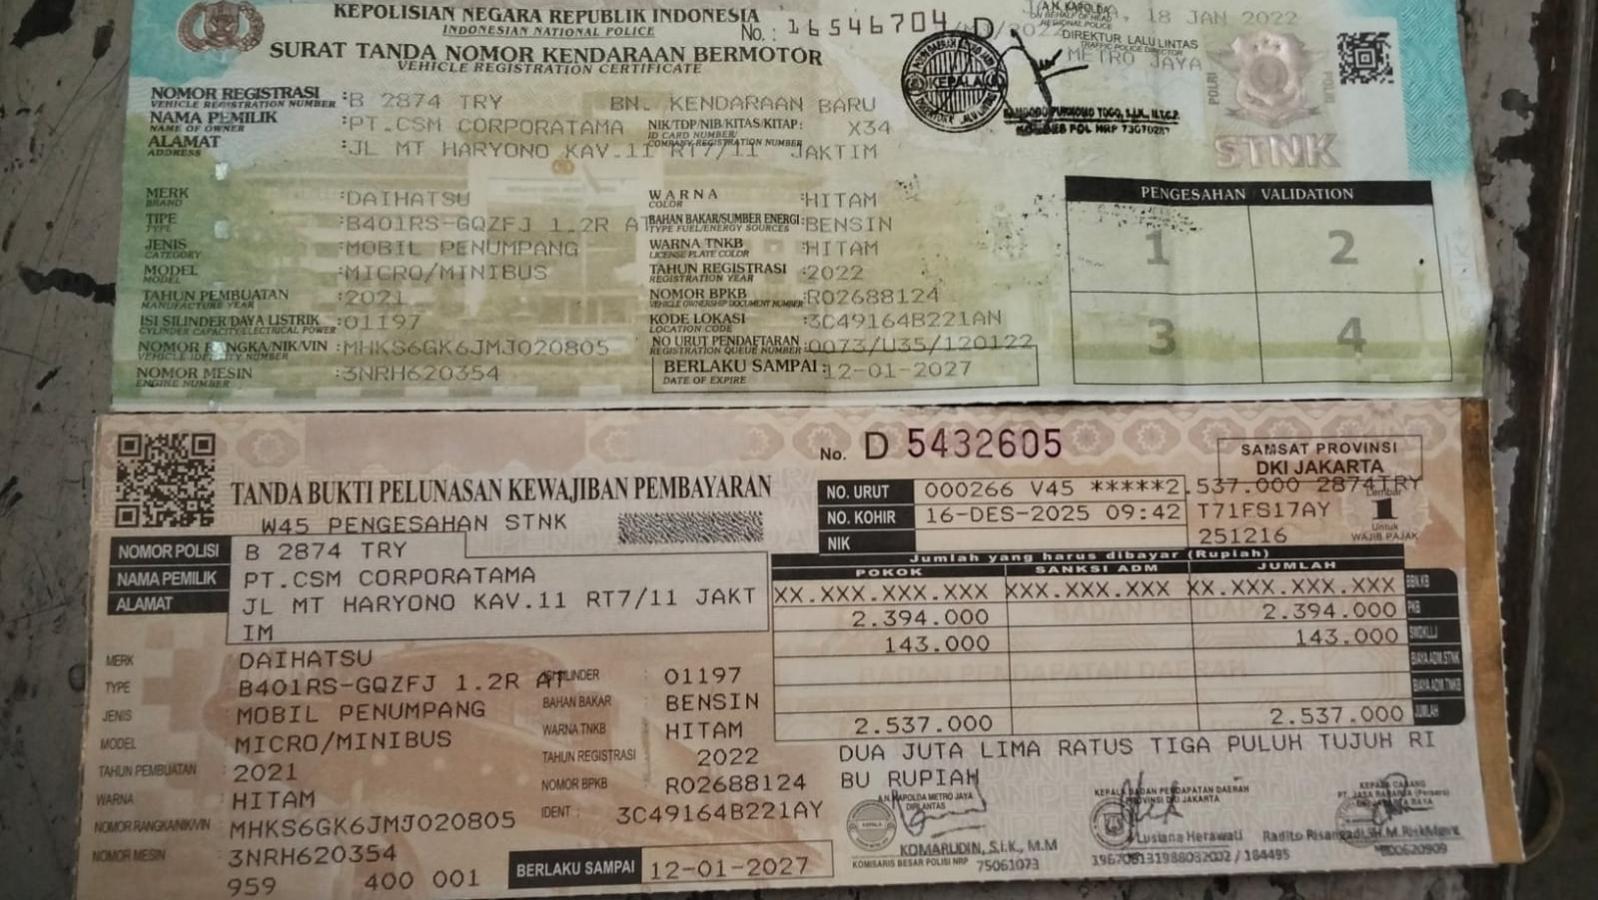 KEPOLISIAN NEGARA REPUBLIK INDONESIA
INDONESIAN NATIONAL POLICE
No. : 16546704 D
SURAT TANDA NOMOR KENDARAAN BERMOTOR
VEHICLE REGISTRATION CERTIFICATE
18 JAN 2022
A.N. KAPOLDA
DIREKTUR LALU LINTAS
TRAFFIC POLICE DIRECTOR
METRO JAYA
KEPALA
POLRI
STNK
NOMOR REGISTRASI :B 2874 TRY BN. KENDARAAN BARU
VEHICLE REGISTRATION NUMBER
NAMA PEMILIK :PT.CSM CORPORATAMA NIK/TDP/NIB/KITAS/KITAP: X34
NAME OF OWNER ID CARD NUMBER/
COMPANY REGISTRATION NUMBER
ALAMAT :JL MT HARYONO KAV.11 RT7/11 JAKTIM
ADDRESS
MERK :DAIHATSU WARNA :HITAM
BRAND COLOR
TIPE :B401RS-GQZFJ 1.2R AT BAHAN BAKAR/SUMBER ENERGI :BENSIN
TYPE TYPE FUEL/ENERGY SOURCES
JENIS :MOBIL PENUMPANG WARNA TNKB :HITAM
CATEGORY LICENSE PLATE COLOR
MODEL :MICRO/MINIBUS TAHUN REGISTRASI :2022
MODEL REGISTRATION YEAR
TAHUN PEMBUATAN :2021 NOMOR BPKB :R02688124
MANUFACTURE YEAR VEHICLE OWNERSHIP DOCUMENT NUMBER
ISI SILINDER/DAYA LISTRIK :01197 KODE LOKASI :3C49164B221AN
CYLINDER CAPACITY/ELECTRICAL POWER LOCATION CODE
NOMOR RANGKA/NIK/VIN :MHKS6GK6JMJ020805 NO URUT PENDAFTARAN :0073/U35/120122
VEHICLE IDENTITY NUMBER REGISTRATION QUEUE NUMBER
NOMOR MESIN :3NRH620354 BERLAKU SAMPAI :12-01-2027
ENGINE NUMBER DATE OF EXPIRE
PENGESAHAN VALIDATION
1 2
3 4
No. D 5432605
SAMSAT PROVINSI
DKI JAKARTA
TANDA BUKTI PELUNASAN KEWAJIBAN PEMBAYARAN
W45 PENGESAHAN STNK
NO. URUT 000266 V45 *****2.537.000 2874TRY
NO. KOHIR 16-DES-2025 09:42 T71FS17AY
NIK 251216
Lembar
1
Untuk
WAJIB PAJAK
NOMOR POLISI B 2874 TRY
NAMA PEMILIK PT.CSM CORPORATAMA
ALAMAT JL MT HARYONO KAV.11 RT7/11 JAKT
IM
Jumlah yang harus dibayar (Rupiah)
POKOK SANKSI ADM JUMLAH
XX.XXX.XXX.XXX XXX.XXX.XXX XX.XXX.XXX.XXX BBN.KB
2.394.000 2.394.000 PKB
143.000 143.000 SWDKLLJ
BIAYA ADM.STNK
BIAYA ADM.TNKB
2.537.000 2.537.000 JUMLAH
DUA JUTA LIMA RATUS TIGA PULUH TUJUH RI
BU RUPIAH
MERK : DAIHATSU
TYPE : B401RS-GQZFJ 1.2R AT ISI SILINDER : 01197
JENIS : MOBIL PENUMPANG BAHAN BAKAR : BENSIN
MODEL : MICRO/MINIBUS WARNA TNKB : HITAM
TAHUN PEMBUATAN : 2021 TAHUN REGISTRASI : 2022
WARNA : HITAM NOMOR BPKB : R02688124
NOMOR RANGKA/NIK/VIN : MHKS6GK6JMJ020805 IDENT : 3C49164B221AY
NOMOR MESIN : 3NRH620354
959 400 001
BERLAKU SAMPAI 12-01-2027
A.N. KAPOLDA METRO JAYA
DIRLANTAS
KOMARUDIN, S.I.K., M.M
KOMISARIS BESAR POLISI NRP 75061073
KEPALA BADAN PENDAPATAN DAERAH
PROVINSI DKI JAKARTA
Lusiana Herawati
KEPALA CABANG
PT. JASA RAHARJA (Persero)